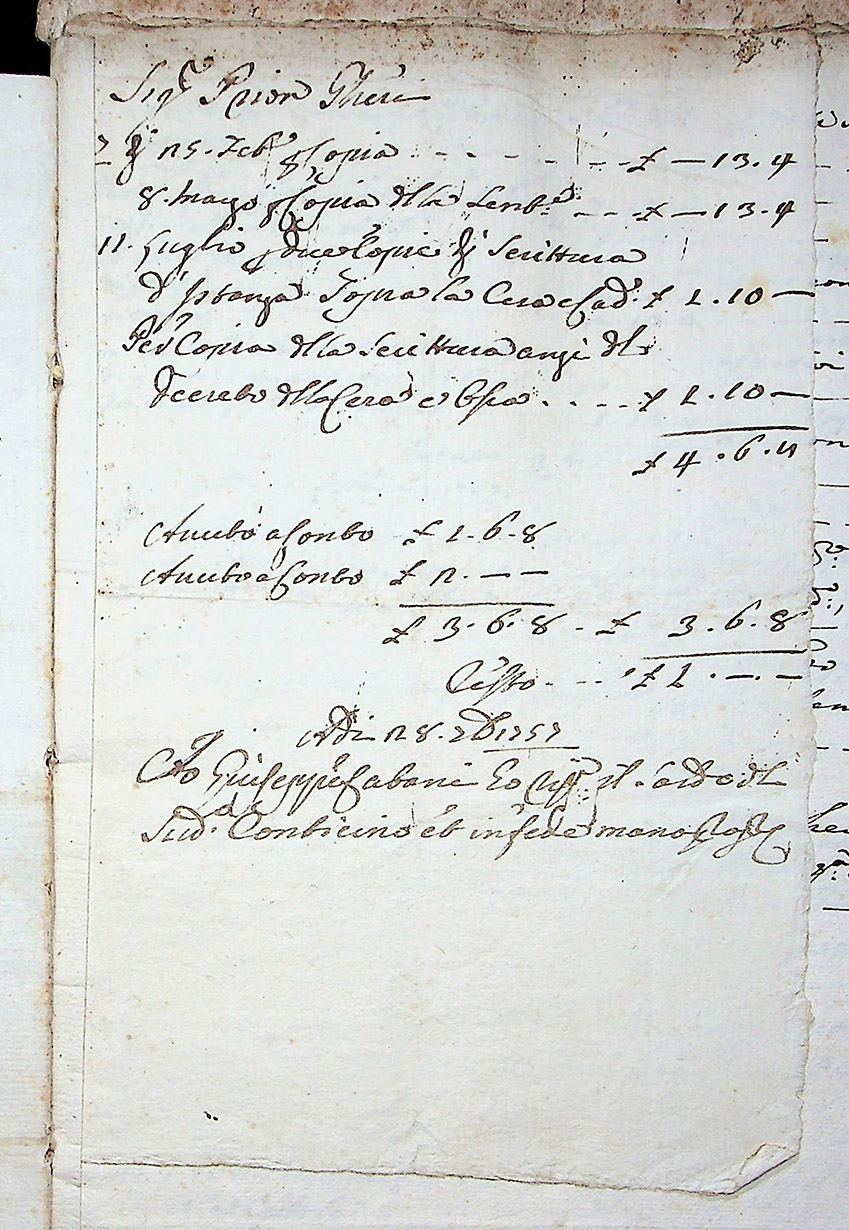 Sigr Prior Gheri
25. Febo p Copia - - - - - £ — 13. 4
8. Marzo p Copia della Senta - - - £ — 13. 4
11. Luglio p due Copie di Scrittura
d'Istanza Sopra la Cera e Cad: £ 1. 10 —
Per Copia della Scrittura anzi del
Decreto della Cera e . . . . £ 1. 10 —
£ 4. 6. 8
Auuto a Conto £ 1. 6. 8
Auuto a Conto £ 2. — —
£ 3. 6. 8 - £ 3. 6. 8
Resto - - - £ 1. — . —
Adi 28. 1757
Io Giuseppe Cabani ho il Saldo del
Sud: Conticino et in fede mano